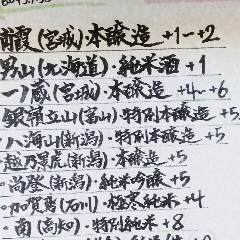 前霞(宮城)本醸造 +1~+2
男山(北海道)・純米酒 +1
一ノ蔵(宮城)・本醸造 +4~+6
銀嶺立山(富山)・特別本醸造 +5
・八海山(新潟)・特別本醸造 +5
・越乃景虎(新潟)・本醸造 +5
・尚登(新潟)・純米吟醸 +5
・加賀鳶(石川)・極寒純米 +4
・南(高知)・特別純米 +8